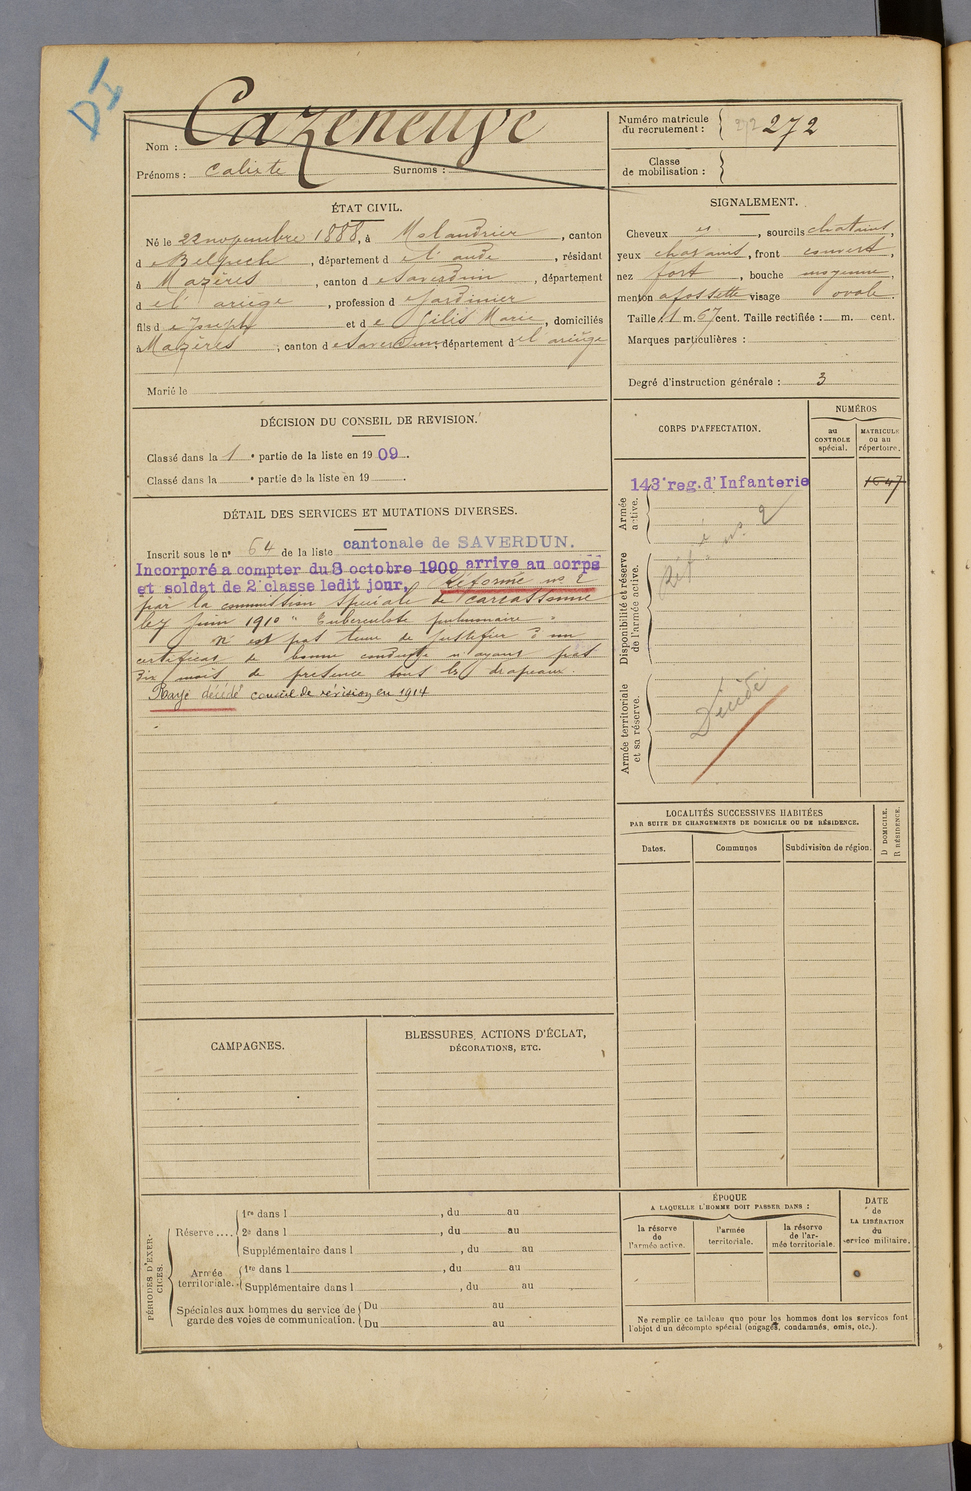 DI
Nom : Cazeneuve
Prénoms : Calixte Surnoms :
Numéro matricule
du recrutement : 272 272
Classe
de mobilisation :
ÉTAT CIVIL.
Né le 22 novembre 1888, à Molandrier, canton
d e Belpech, département d e l'aude, résidant
à Mazères, canton d e Saverdun, département
d e l' ariège, profession d e Jardinier
fils d e Joseph et d e Gilis Marie, domiciliés
à Mazères, canton d e Saverdun, département d e l'ariège
Marié le
SIGNALEMENT.
Cheveux et, sourcils chatains,
yeux chatains, front couvert,
nez fort, bouche moyenne,
menton a fossette visage ovale.
Taille : 1 m. 67 cent. Taille rectifiée : m. cent.
Marques particulières :
Degré d'instruction générale : 3
DÉCISION DU CONSEIL DE REVISION.
Classé dans la 1 e partie de la liste en 1909.
Classé dans la e partie de la liste en 19
DÉTAIL DES SERVICES ET MUTATIONS DIVERSES.
Inscrit sous le n° 64 de la liste cantonale de SAVERDUN.
Incorporé a compter du 8 octobre 1909 arrive au corps
et soldat de 2e classe ledit jour, Réformé n° 2
par la commission spéciale de Carcassonne
le 7 juin 1910 " Tuberculose pulmonaire "
N'est pas tenu de justifier d'un
certificat de bonne conduite n'ayant pas
dix mois de présence sous les drapeaux.
Rayé décédé conseil de révision en 1914
CORPS D'AFFECTATION.
NUMÉROS
au
CONTROLE
spécial.
MATRICULE
ou au
répertoire.
Armée
active.
143e reg. d'Infanterie
1647
Disponibilité et réserve
de l'armée active.
Réf é n° 2
Armée territoriale
et sa réserve.
Décédé
LOCALITÉS SUCCESSIVES HABITÉES
PAR SUITE DE CHANGEMENTS DE DOMICILE OU DE RÉSIDENCE.
Dates.
Communes
Subdivision de région.
D DOMICILE.
R RÉSIDENCE.
CAMPAGNES.
BLESSURES, ACTIONS D'ÉCLAT,
DÉCORATIONS, ETC.
PÉRIODES D'EXER-
CICES.
Réserve....
1re dans l , du au
2e dans l , du au
Supplémentaire dans l , du au
Armée
territoriale.
1re dans l , du au
Supplémentaire dans l , du au
Spéciales aux hommes du service de
garde des voies de communication.
Du au
Du au
ÉPOQUE
A LAQUELLE L'HOMME DOIT PASSER DANS :
la réserve
de
l'armée active.
l'armée
territoriale.
la réserve
de l'ar-
mée territoriale.
DATE
de
LA LIBÉRATION
du
service militaire.
Ne remplir ce tableau que pour les hommes dont les services font
l'objet d'un décompte spécial (engagés, condamnés, omis, etc.).